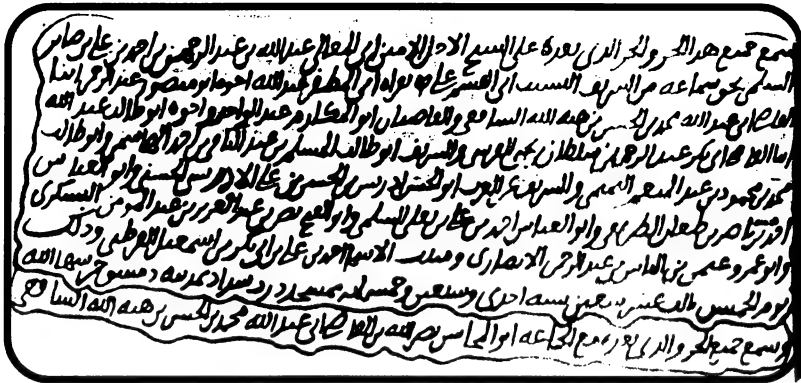 سمع جميع هدا الجز والجز الدى بعده على السيح الاجل الامين ابى المعالى عبد الله بن عبد الرحمن بن احمد بن على بن صابر
السلمى بحق سماعه من الشريف النسيب ابى القسم على بقراه ابى المظفر عبد الله اخوه ابو منصور عبد الرحمن ابنا
القاضى ابى عبد الله محمد بن الحسن بن هبه الله السافعى والقاضيان ابو المكارم عبد الواحد واخوه ابو طالب عبد الله
ابنا القاضى ابى بكر عبد الرحمن بن سلطان بن يحيى القرسى والشريف ابو طالب المسلم بن عبد الباقى بن احمد الهاشمى وابو طالب
محمد بن محمود بن عبد المنعم التميمى والشريف ابو الحسن ادريس بن الحسن بن على الادريسى الحسنى وابو العباس
احمد بن ناصر بن طعان الطريفى وابو العباس احمد بن على بن يعلى السلمى وابو الفتح نصر بن عبد العزيز بن عبد المومن السكرى
وابو عمرو عثمن بن الياس بن عبد الرحمن الانصارى ومثبت الاسم احمد بن على بن ابى بكر بن اسمعيل القرطبى ودلك
يوم الخميس ثالث عشر شعبن سنه احدى وسبعين وخمس مايه بمسجد درد سداد بمدينه دمسق حرسها الله
وسمع جميع الجز والدى بعده مع الجماعه ابو المحاسن نصر الله بن القاضى ابى عبد الله محمد بن الحسن بن هبه الله السافعى